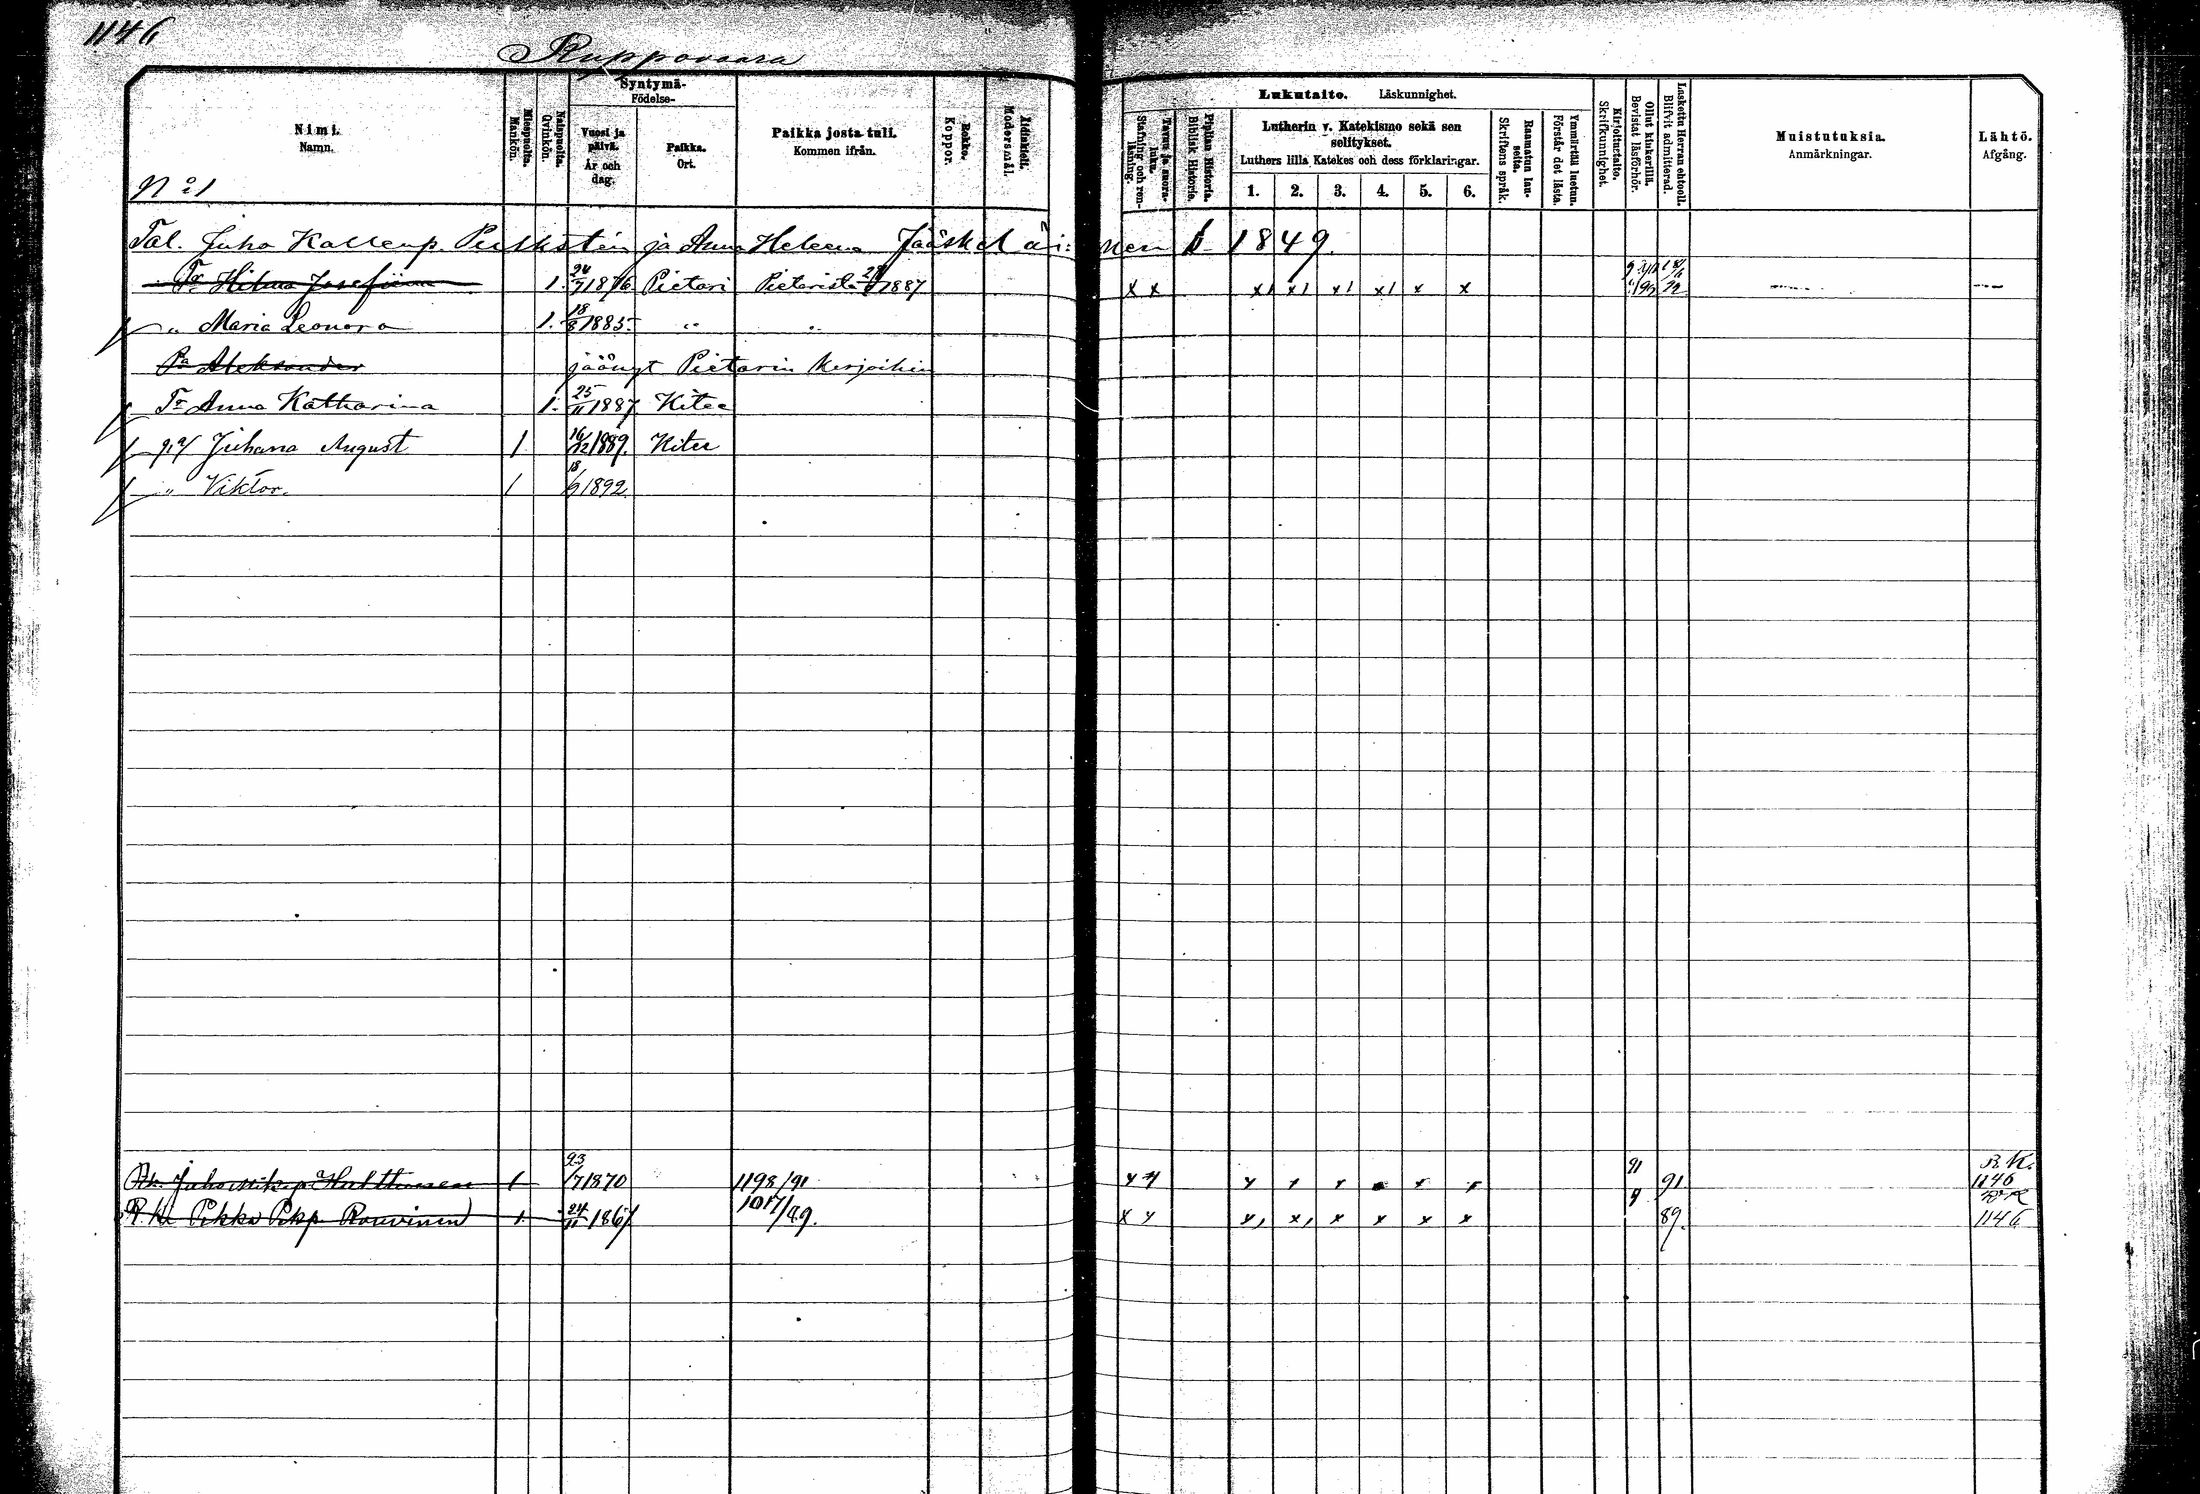 1146
Ruppovaara
Nimi. Namn.
Miespuolta. Mankön.
Naispuolta. Qvinkön.
Syntymä- Födelse-
Vuosi ja päivä. År och dag.
Paikka. Ort.
Paikka josta tuli. Kommen ifrån.
Rokko. Koppor.
Äidinkieli. Modersmål.
Lukutaito. Läskunnighet.
Tavuu ja suora- luku. Stafning och ren- läsning.
Piplian Historia. Biblisk Historia.
Lutherin v. Katekismo sekä sen selitykset.
Luthers lilla Katekes och dess förklaringar.
1. 2. 3. 4. 5. 6.
Raamatun lau- seita. Skriftens språk.
Ymmärtää luetun. Förstår det lästa.
Kirjoitustaito. Skrifkunnighet.
Ollut kinkerillä. Bevistat läsförhör.
Laskettu Herran ehtooll. Blifvit admitterad.
Muistutuksia. Anmärkningar.
Lähtö. Afgång.
No 1
Tal. Juho Kallenp. ja Anna Heleena Jääskeläinen 1849.
Tr Hilma Josefiina 1. 24/7 1876. Pietari Pietarista 1887 x x x1 x1 x1 x1 x x
" Maria Leonora 1. 18/8 1885. " "
Pa Aleksander jäänyt Pietarin kirjoihin
Tr Anna Katharina 1. 25/11 1887 Kitee
Juhana August 1 16/12 1889. Kitee
" Viktor. 1 18/9 1892
1 23/7 1870 1198/91 x x x x x x x x 91 91 R.K. 1146
R. Pekka Pekp. Rouvinen 1. 24/11 1867 1017/89. x x x, x, x x x x 89. 1146